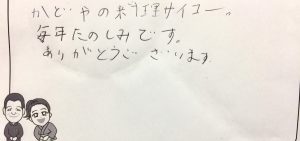 かどやの料理サイコー。
毎年たのしみです。
ありがとうございます